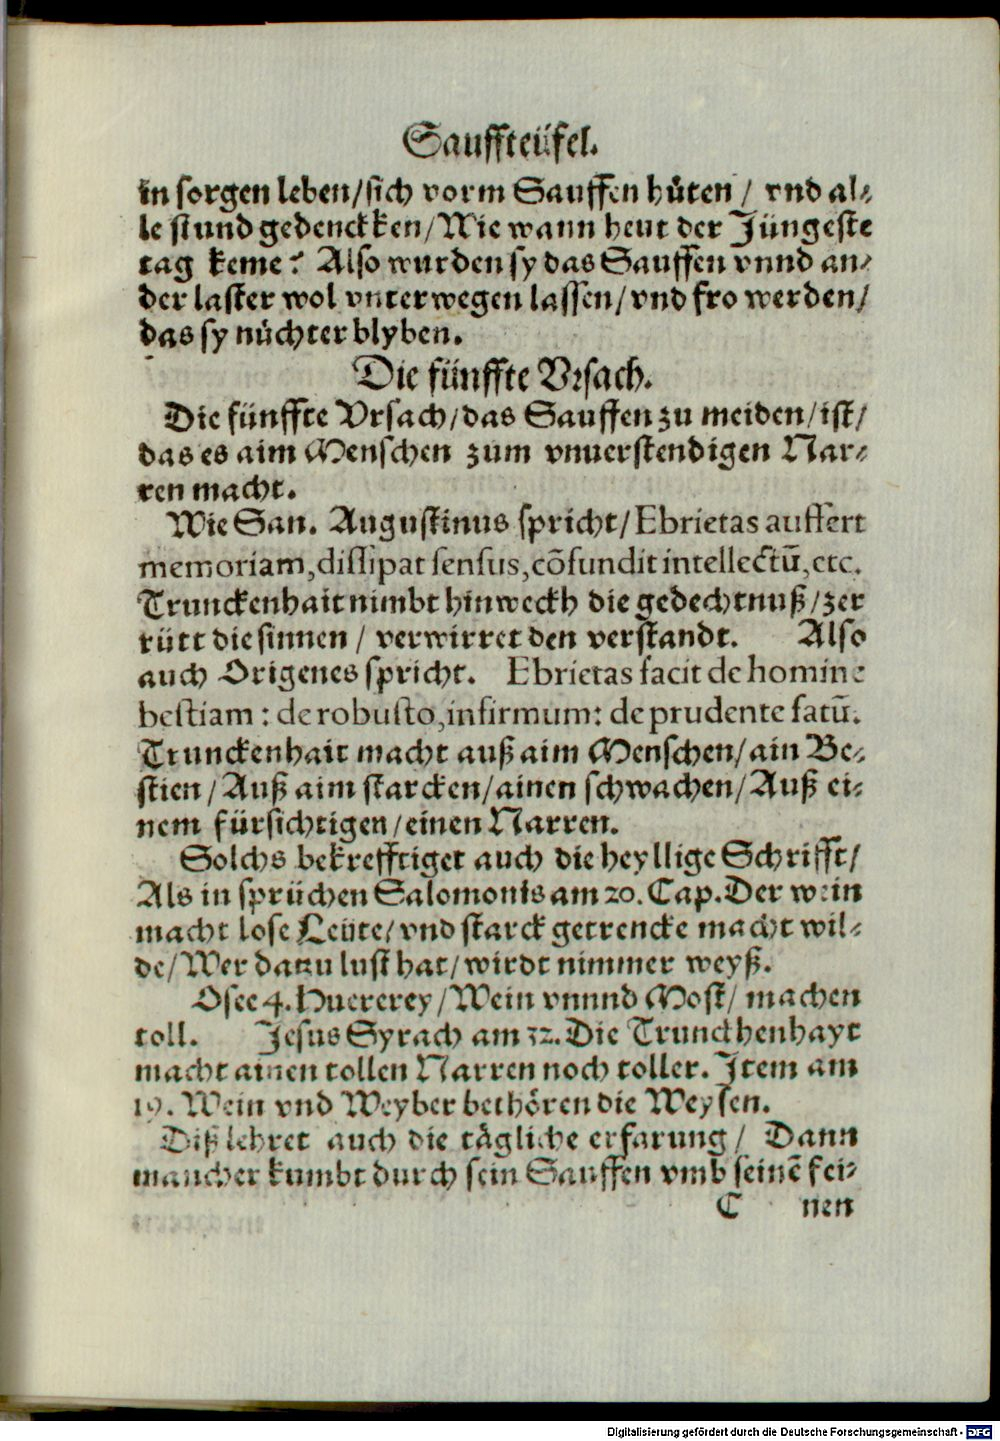 Sauffteüfel.
in sorgen leben/sich vorm Sauffen hůten / vnd al⸗
le stund gedenckken/Wie wann heut der Jüngeste
tag keme? Also wurden sy das Sauffen vnnd an⸗
der laster wol vnterwegen lassen/vnd fro werden/
das sy nüchter blyben.
Die fünffte Vrsach.
Die fünffte Vrsach/das Sauffen zu meiden/ist/
das es aim Menschen zum vnuerstendigen Nar⸗
ren macht.
Wie San. Augustinus spricht/Ebrietas auffert
memoriam,dissipat sensus,cõfundit intellectũ,etc.
Trunckenhait nimbt hinweckh die gedechtnuß/zer
rütt die sinnen / verwirret den verstandt. Also
auch Origenes spricht. Ebrietas facit de homine
bestiam : de robusto,infirmum: de prudente fatũ.
Trunckenhait macht auß aim Menschen/ain Be⸗
stien/Auß aim starcken/ainen schwachen/Auß ei⸗
nem fürsichtigen/einen Narren.
Solchs bekrefftiget auch die heyllige Schrifft/
Als in sprüchen Salomonis am 20. Cap. Der wein
macht lose Leüte/vnd starck getrencke macht wil⸗
de/Wer datzu lust hat/wirdt nimmer weyß.
Osee 4. Huererey/Wein vnnnd Most/ machen
toll. Jesus Syrach am 32. Die Truncthenhayt
macht ainen tollen Narren noch toller. Item am
19. Wein vnd Weyber bethören die Weysen.
Diß lehret auch die tägliche erfarung/ Dann
mancher kumbt durch sein Sauffen vmb seinẽ fei⸗
C nen
Digitalisierung gefördert durch die Deutsche Forschungsgemeinschaft - DFG